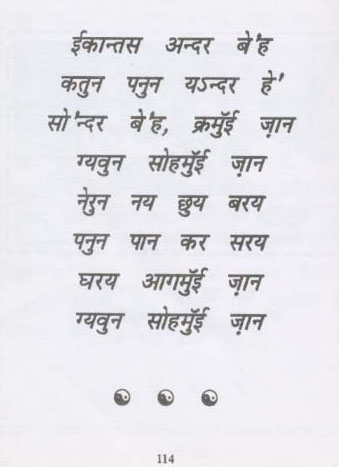 ईकान्तस अन्दर बे'ह
कतुन पनुन यऽन्दर हे'
सो'न्दर बे'ह, क्रमुॅई ज़ान
ग्यवुन सोहमुॅई ज़ान
नेरुन नय छुय बरय
पनुन पान कर सरय
घरय आगमुॅई ज़ान
ग्यवुन सोहमुॅई ज़ान
114